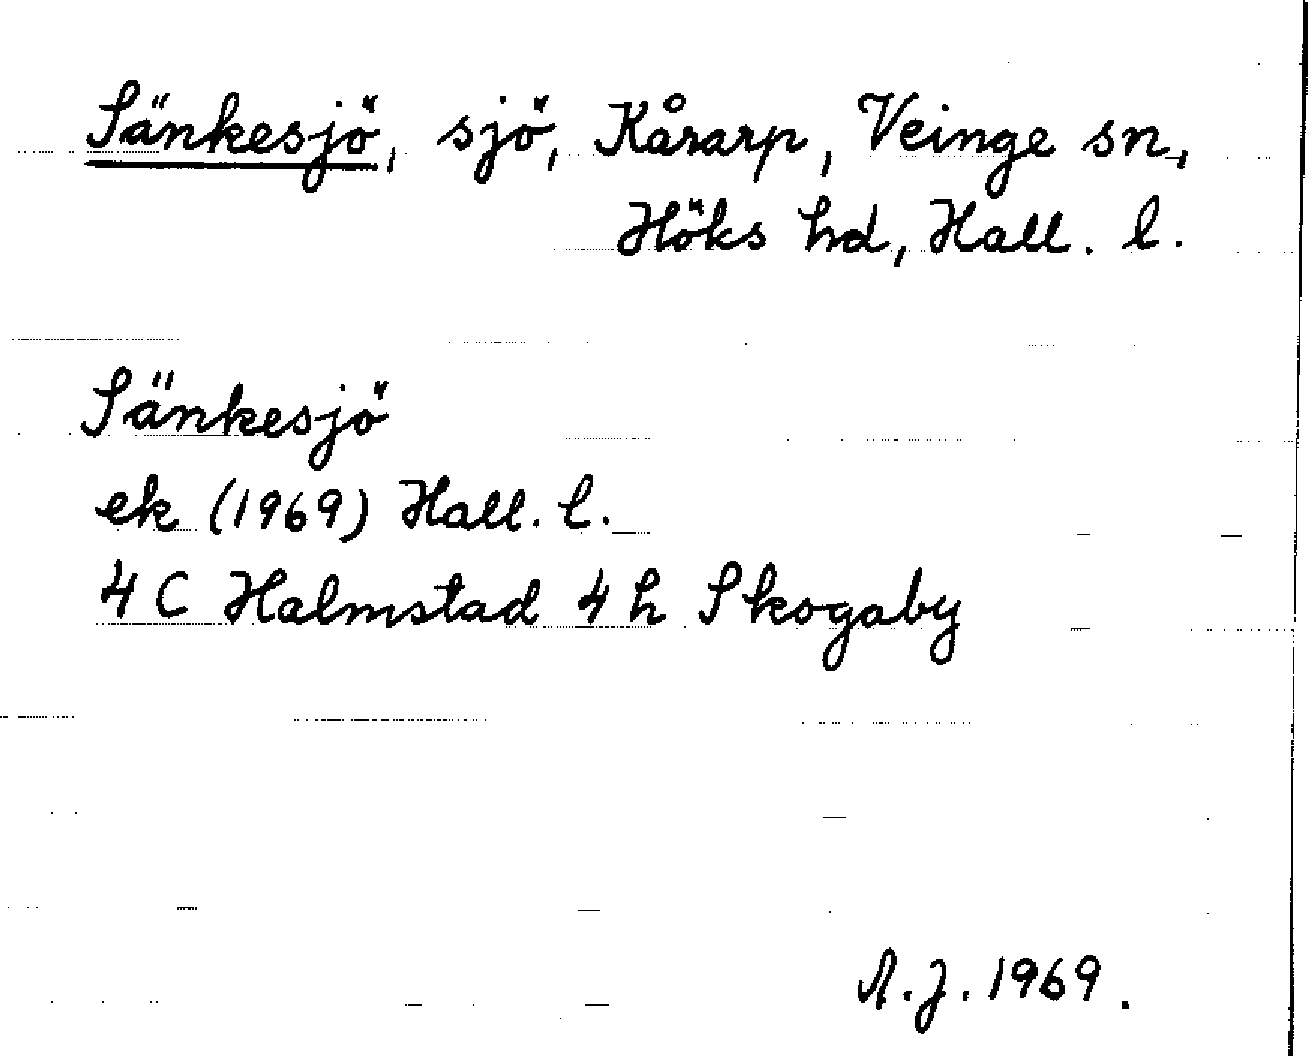 Sänkesjö, sjö, Kårarp, Veinge sn,
Höks hd, Hall. l.
Sänkesjö
ek (1969) Hall. l.
4 C Halmstad 4 h Skogaby
A.J. 1969.